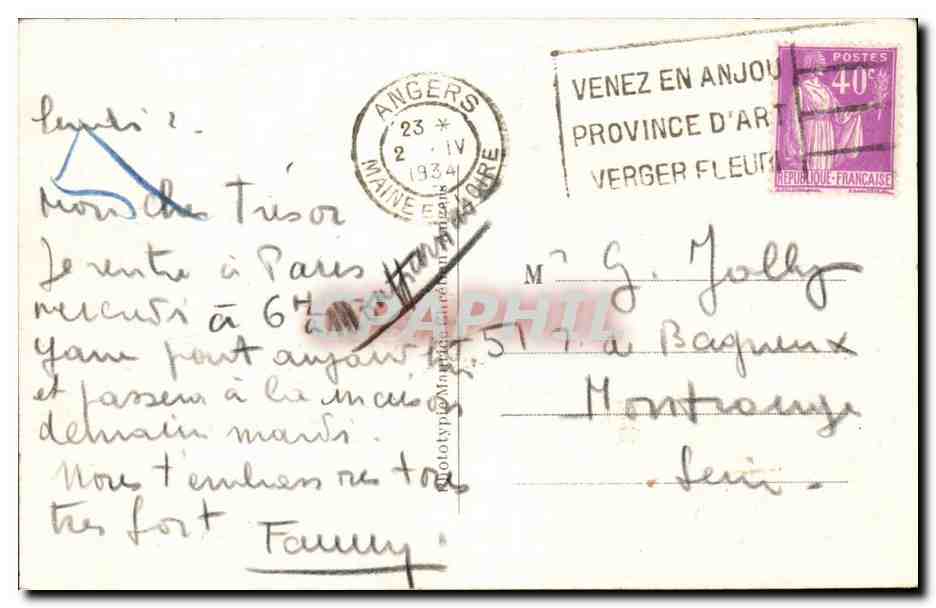 Lundi 2.
Mon cher Trésor
Je rentre à Paris
mercredi à 6H à Montparnasse
Yann part aujourd'hui
et passera à la maison
demain mardi.
Nous t'embrassons tous
très fort
Fanny.
ANGERS
23 *
2 · IV
1934
MAINE ET LOIRE
VENEZ EN ANJOU
PROVINCE D'ART
VERGER FLEURI
POSTES
40c
REPUBLIQUE-FRANÇAISE
Mr G. Jolly
51 r. de Bagneux
Montrouge
Seine.
Phototypie Maurice Chrétien Angers
CPAPHIL